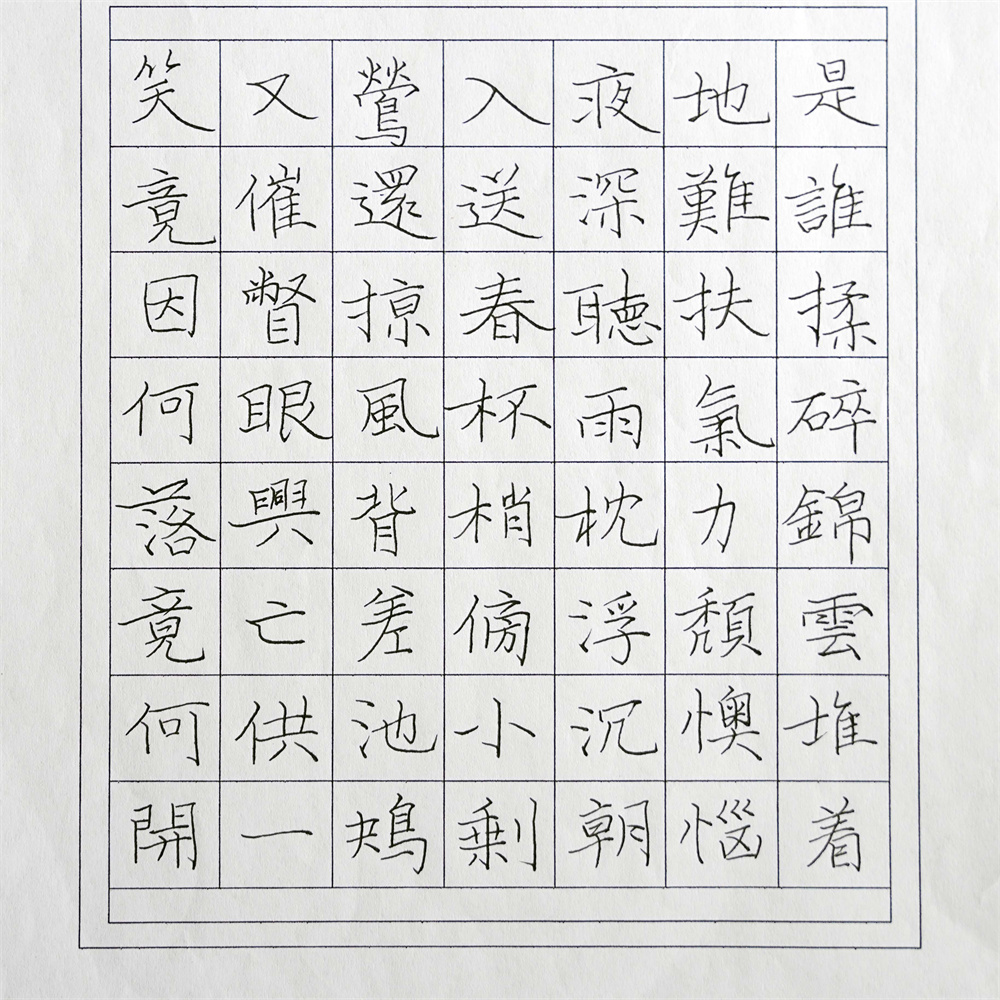 是誰揉碎錦雲堆着
地難扶氣力頹懊惱
夜深聽雨枕浮沉朝
入送春杯梢傍小剩
鶯還掠風背差池鳺
又催瞥眼興亡供一
笑竟因何落竟何開